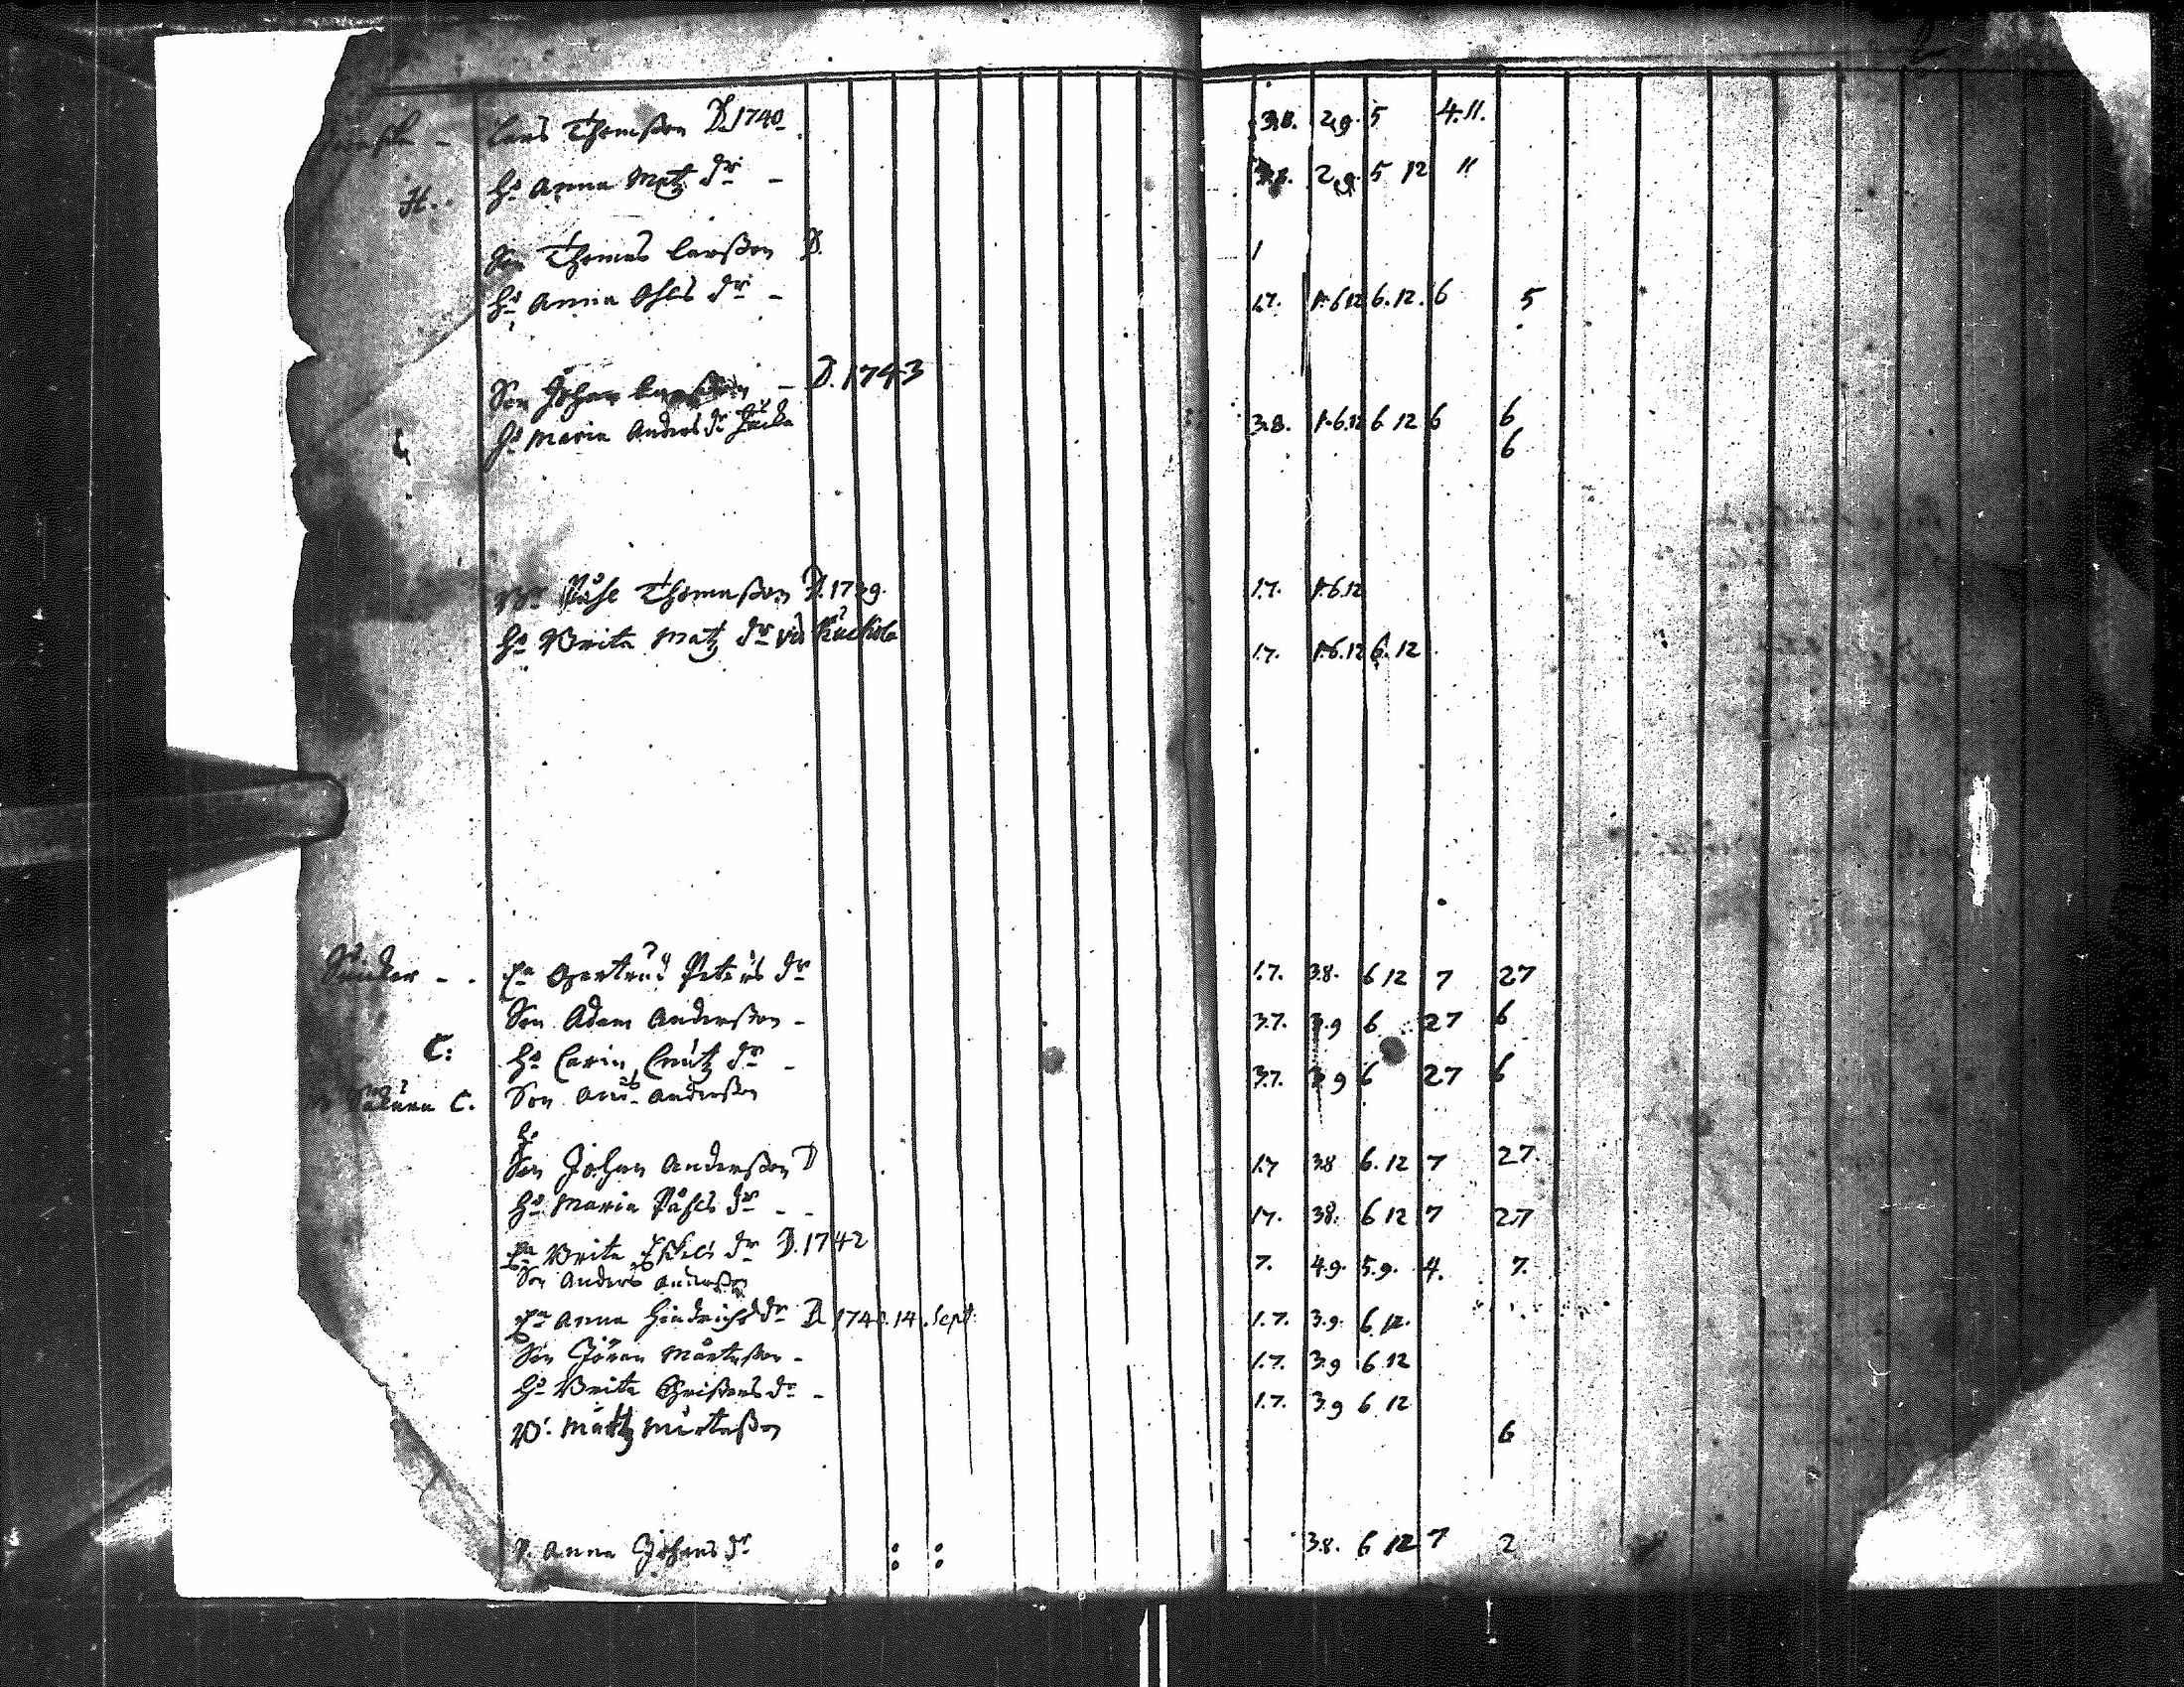 2
Lars Thomßon D. 1740 3.8. 2.9. 5 4.11.
H. Hs Anna Matz dr - 3.8. 2.9. 5 12 11
Son Thomas Larßon D. 1
Hs Anna Ohls dr - 1.7. 1.6.12 6.12. 6 5
Son Johan Larßon - D. 1743
Hs Maria Anders dr 3.8. 1.6.12 6 12 6 6
6
Påhl Thomaßon D. 1739. 1.7. 1.6.12
Hs Brita Matz dr 1.7. 1.6.12 6.12
Ea Gertrud Peters dr 1.7. 3.8. 6 12 7 27
Son Adam Anderßon - 3.7. 3.9 6 27 6
C: Hs Carin Cnutz dr - 3.7. 3.9 6 27 6
C. Son Anderßon
Hs
Son Johan Anderßon D 1.7 3.8 6.12 7 27
Hs Maria Påhls dr - - 1.7. 3.8. 6 12 7 27
Ea Brita Eskels dr D. 1742 7. 4.9. 5.9. 4. 7.
Son Anders Anderßon
Ea Anna Hindrichs dr D 1740. 14. Sept. 1.7. 3.9. 6 12.
Son Jöran Mårtenßon - 1.7. 3.9 6 12
Hs Brita Grißers dr - 1.7. 3.9 6 12
Mattz Mårtenßon 6
P. Anna Johans dr : : 3.8. 6 12 7 2